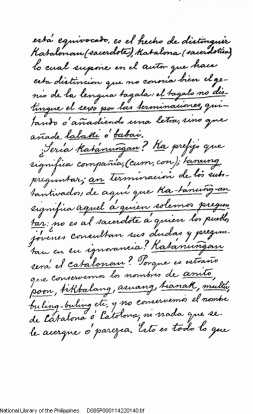 está equivocado, es el hecho de distinguir
Katalonan (sacerdote), Katalona (sacerdotisa)
lo cual supone en el autor que hace
esta distincion que no conoría bien el ge-
nio de la lengua tagala: el tagalo no dis-
tingue el sexo por las terminaciones, qui-
tando ó añadiendo una letra, sino que
añade lalaki ó babai.
¿Sería Katanungan? Ka prefijo que
significa compañía, (cum, con); tanung
preguntar; an terminacion de los subs-
tantivados de aquí que Ka-tanung-an
significa aquel á quien solemos pregun
tar; no es al sacerdote á quien los pueblos
jóvenes consultan sus dudas y pregun-
tan en su ignorancia? Katanungan
será el catalonan? Porque es extraño
que conservemos los nombres de anito,
poon, tikbalang, asuang, tianak, multo,
buling-buling etc, y no conservemos el nombre
de Catalona ó Catolona, ni nada que se
le acerque ó parezca. Esto es todo lo que
National Library of the Philippines D005P000114220140.tif